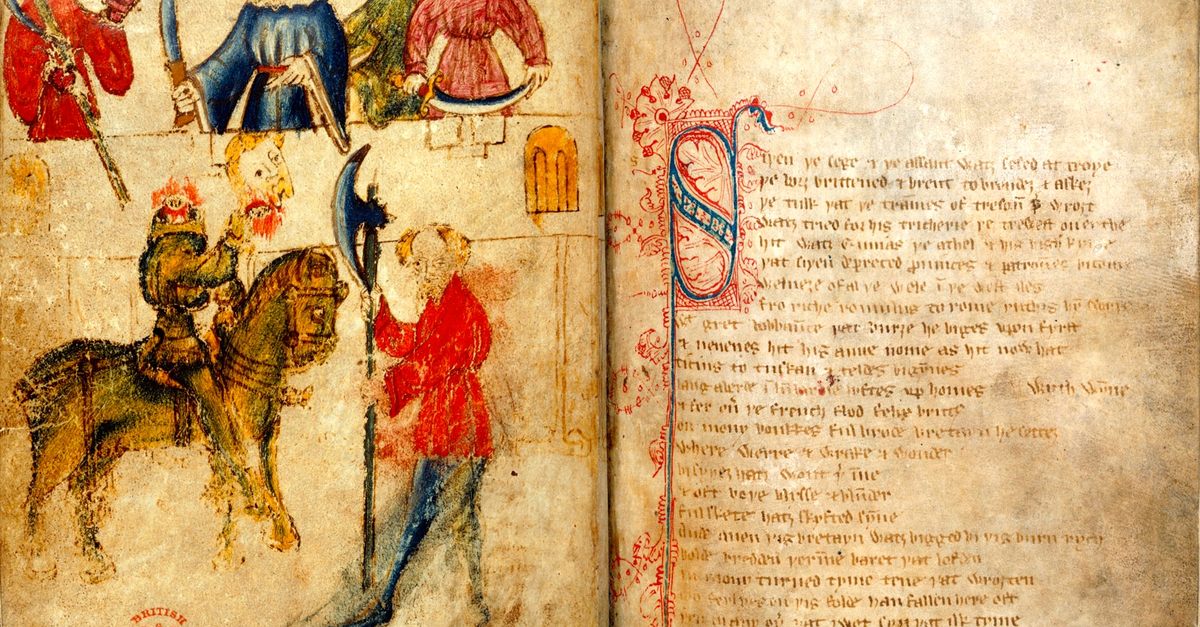 BRITISH
Siþen þe sege & þe assaut watz sesed at troye
þe borȝ brittened & brent to brondeȝ & askez
þe tulk þat þe trammes of tresoū þ̄ wroȝt
watz tried for his tricherie þe trewest on erthe
hit watz Ennias þe athel & his highe kynde
þat siþen depreced prouinces & patrounes bicome
welneȝe of al þe wele ī þe west iles
fro riche romulus to rome ricchis hȳ swyþe
gret bobbaūce þat burȝe he biges vpon fyrst
& neuenes hit his aune nome as hit now hat
ticius to tuskan & teldes bigynnes
langaberde ī lumbardie lyftes vp homes wyth wȳne
& fer oū þe french flod felix brutꝰ
on mony bonkkes ful brode bretayn he settez
where werre & wrake & wonder
bi syþez hatz wont þ̄ īne
& oft boþe blysse & blunder
ful skete hatz skyfted sȳne
Ande quen þis bretayn watz bigged bi þis burn rych
bolde bredden þ̄ īne baret þat lofden
in mony turned tyme tene þat wroȝten
mo ferlyes on þis folde han fallen here oft
þen in any oþ̄ þat I wot syn þat ilk tyme